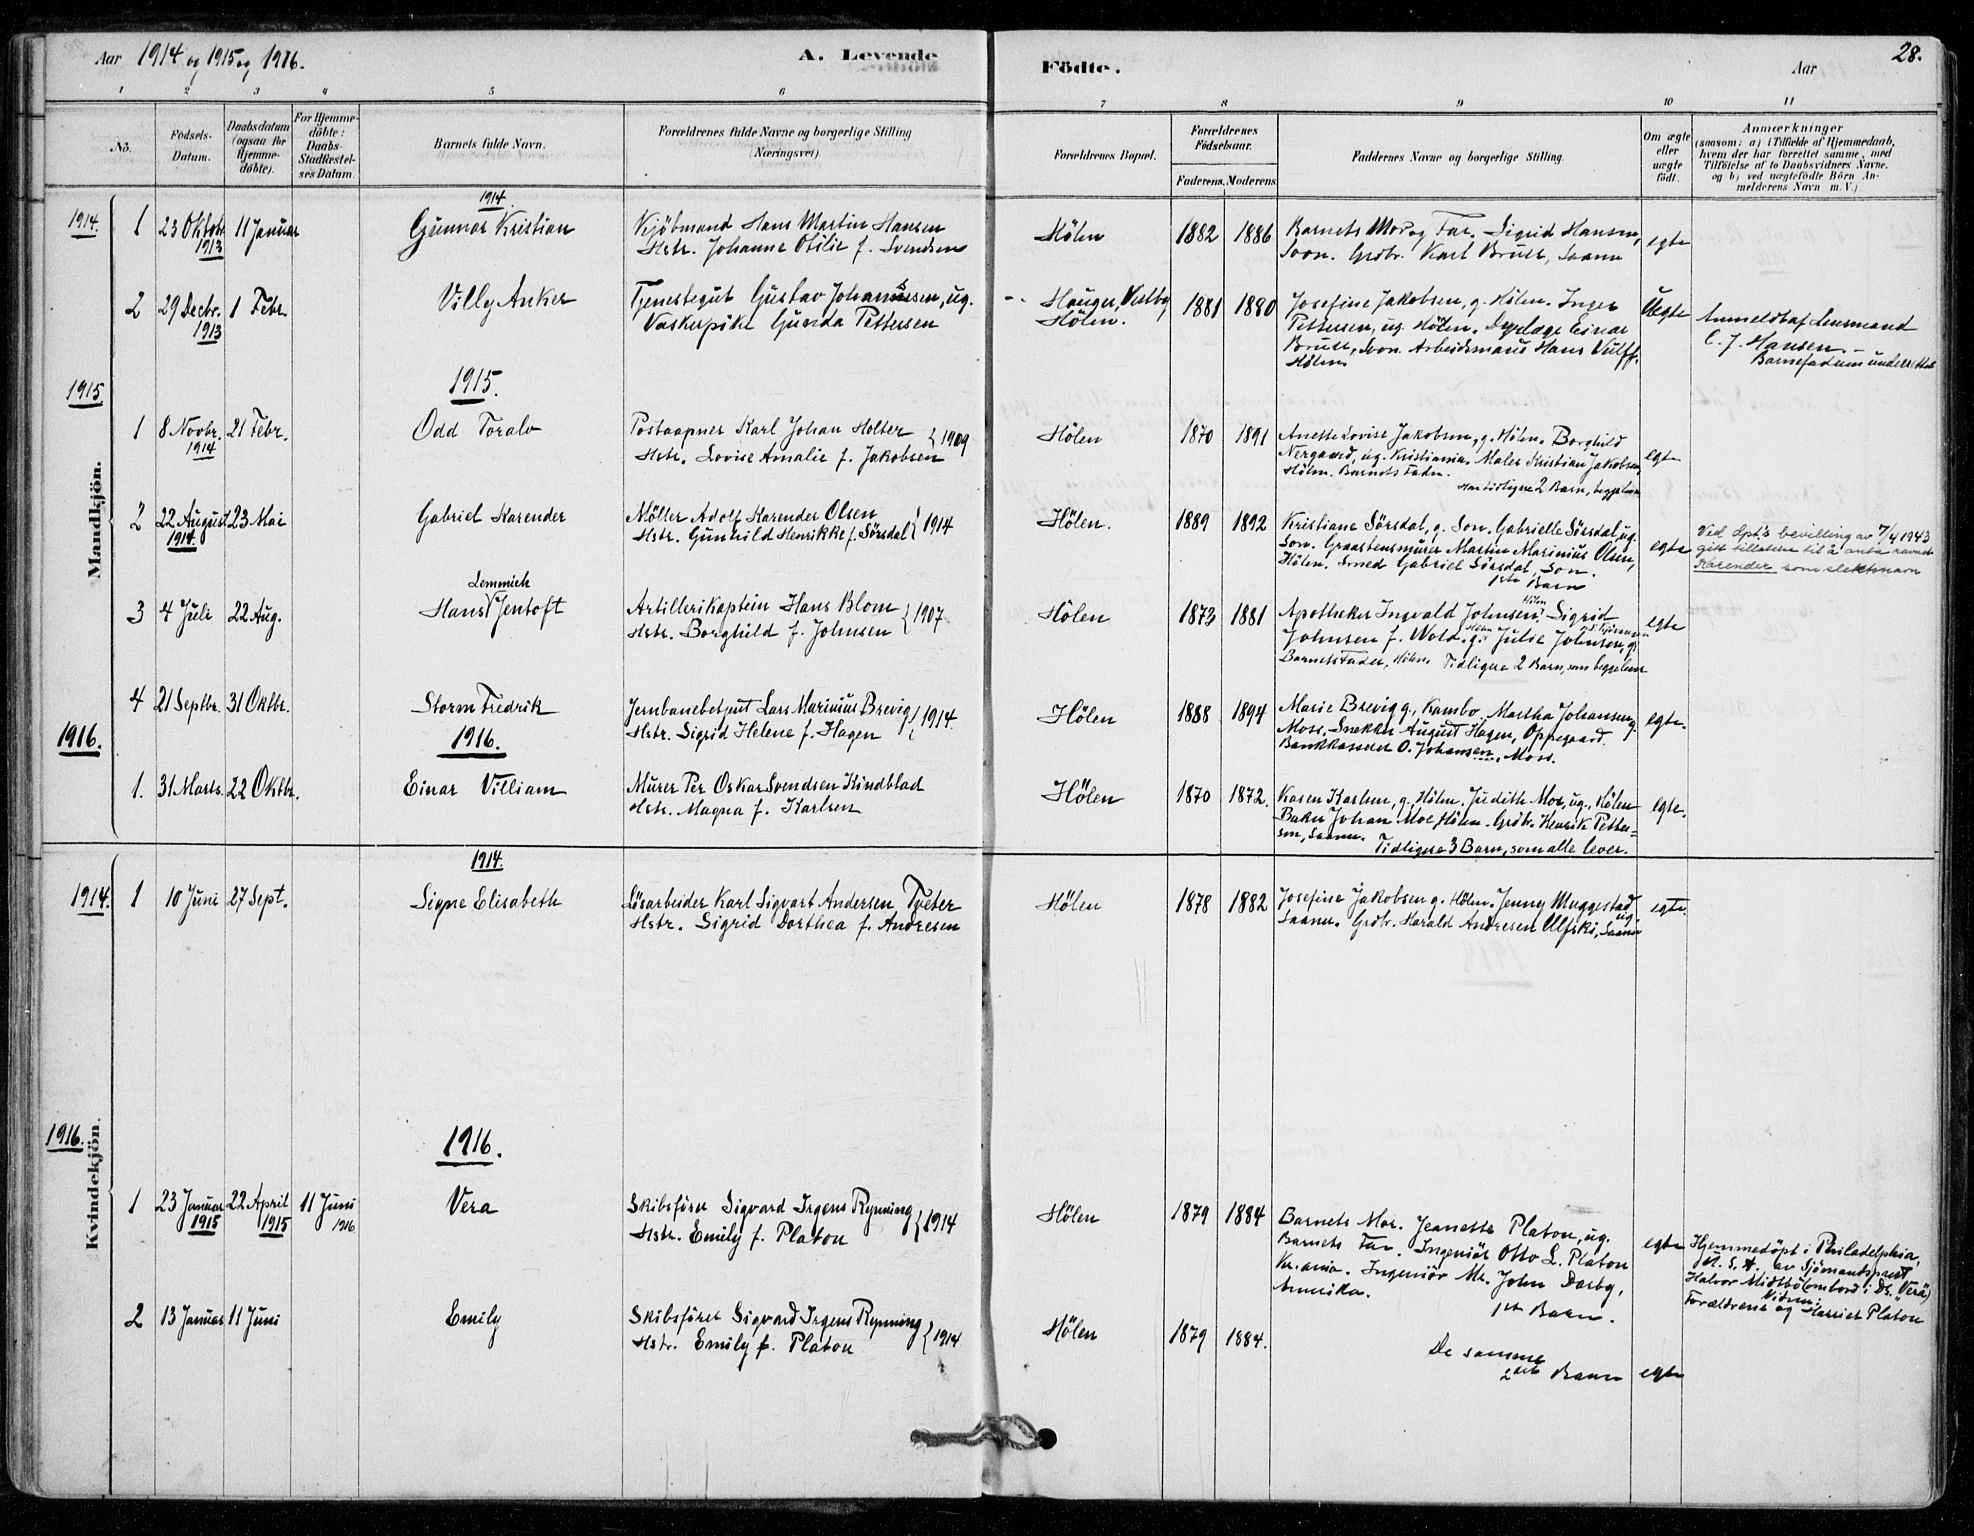 28.
Aar 1914 og 1915 og 1916.
A. Levende
Födte.
Aar
1 2 3 4 5 6 7 8 9 10 11
No.
Födsels-
Datum.
Daabsdatum
(ogsaa for
Hjemme-
döbte).
For Hjemme-
döbte:
Daabs-
Stadfæstel-
ses Datum.
Barnets fulde Navn.
Forældrenes fulde Navne og borgerlige Stilling
(Næringsvei).
Forældrenes Bopæl.
Forældrenes
Födselsaar.
Faderens. Moderens.
Faddernes Navne og borgerlige Stilling.
Om ægte
eller
uægte
födt.
Anmærkninger
(saasom: a) i Tilfælde af Hjemmedaab,
hvem der har forrettet samme, med
Tilföielse af to Daabsvidners Navne,
og b) ved uægtefödte Börn An-
melderens Navn m. V.)
Mandkjön.
1914.
1914
1 23 Oktobr. 11 Januar
1913
Gunnar Kristian
Kjöbmand Hans Martin Hansen
Hstr. Johanne Otilie f. Svendsen
Hölen
1882 1886
Barnets Mor og Far. Sigrid Hansen,
Soon. Grdbr. Karl Bruer, Saaner
egte
2 29 Decbr. 1 Febr.
1913
Villy Anker
Tjenestegut Gustav Johansen, ug.
Vaskepike Gunda Pettersen
Hauger, Vestby
Hölen.
1881 1880
Josefine Jakobsen, g. Hölen. Inger
Pettersen, ug. Hölen. Einar
Soon. Arbeidsmand Hans Vulff.
Hölen
Uegte
Anmeldt af Lensmand
C. J. Hansen.
1915.
1915.
1 8 Novbr. 21 Febr.
1914
Odd Toralv
Postaapner Karl Johan Holter
Hstr. Lovise Amalie f. Jakobsen } 1909
Hölen
1870 1891
Anette Lovise Jakobsen, g. Hölen. Borghild
Nergaard, ug. Kristiania. Maler Kristian Jakobsen,
Hölen. Barnets Fader.
Har tidligere 2 Barn, begge lever
egte
2 22 August 23 Mai
1914.
Gabriel Karender
Möller Adolf Karender Olsen
Hstr. Gunhild Henrikke f. Sörsdal } 1914
Hölen.
1889 1892
Kristiane Sörsdal, g. Son. Gabrielle Sörsdal, ug.
Son. Graastensmurer Martin Marinius Olsen,
Hölen. Smed Gabriel Sörsdal, Son.
1ste Barn
egte
Ved Dpt's bevilling av 7/4 1943
gitt tillatelse til å anta navnet
Karender som slektsnavn
3 4 Juli 22 Aug.
Lemmich
Hans Jentoft
Artillerikaptein Hans Blom
Hstr. Borghild f. Johnsen } 1907
Hölen
1873 1881
Apotheker Ingvald Johnsen, Hölen. Sigrid
Johnsen f. Wold, g. Hölen. Julie Johnsen, g.
Barnets Fader, Hölen. Tidligere 2 Barn, som begge lever
egte
4 21 Septbr. 31 Oktbr.
Storm Fredrik
Jernbanebetjent Lars Marinius Brevig
Hstr. Sigrid Helene f. Hagen } 1914
Hölen
1888 1894
Marie Brevig g., Kambo. Martha Johansen g.
Moss. Snekker August Hagen, Oppegaard.
Bankkasserer O. Johansen, Moss.
egte.
1916.
1916.
1. 31 Marts. 22 Oktbr.
Einar Villiam
Murer Per Oskar Svendsen Kindblad
Hstr. Magna f. Karlsen
Hölen
1870 1872.
Karen Karlsen, g., Hölen. Judith Moe, ug., Hölen
Baker Johan Moe, Hölen. Grdbr. Henrik Petter-
sen, Saaner.
Tidligere 3 Barn, som alle lever.
egte.
Kvindekjön.
1914.
1914.
1 10 Juni 27 Sept.
Signe Elisabeth
Lösarbeider Karl Sigvart Andersen Tveter
Hstr. Sigrid Dorthea f. Andresen
Hölen
1878 1882
Josefine Jakobsen g. Hölen. Jenny Muggestad ug.
Saaner. Grdbr. Harald Andresen Ulfski, Saaner
egte.
1916.
1916.
1 23 Januar 22 April 11 Juni
1915 1915 1916.
Vera
Skibsförer Sigvard Irgens Rynning
Hstr. Emily f. Platou } 1914
Hölen
1879 1884
Barnets Mor. Jeanette Platou, ug.
Barnets Far. Ingeniör Otto L. Platou
Kr.ania. Ingeniör Mr. John Darby,
Amerika.
1ste Barn.
egte
Hjemmedöpt i Philadelphia,
U. S. A. av Sjömandsprest
Halvor Midtbö (ombord i Ds. "Vera")
Vidner:
Forældrene og Harriet Platou
2 13 Januar 11 Juni
Emily
Skibsförer Sigvard Irgens Rynning
Hstr. Emily f. Platou } 1914
Hölen
1879 1884.
De samme
2det Barn
egte